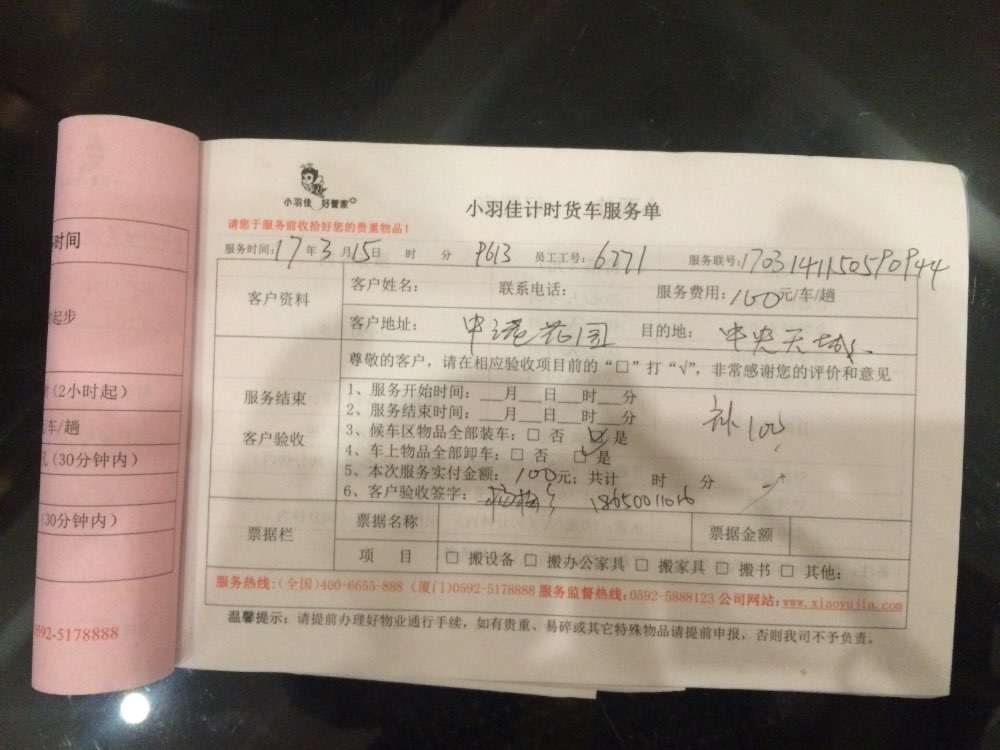 小羽佳 好管家
小羽佳计时货车服务单
请您于服务前收拾好您的贵重物品！
服务时间：17年3月15日 时 分 P613 员工工号：6271 服务联号：
客户资料
客户姓名： 联系电话： 服务费用：100元/车/趟
客户地址：中港花园 目的地：中央天城
尊敬的客户，请在相应验收项目前的“□”打“√”，非常感谢您的评价和意见
服务结束
客户验收
1、服务开始时间：__月__日__时__分
2、服务结束时间：__月__日__时__分
补100
3、候车区物品全部装车：□ 否 ☑ 是
4、车上物品全部卸车：□ 否 ☑ 是
5、本次服务实付金额：100元；共计 时 分
6、客户验收签字： 18650011016
票据栏
票据名称 票据金额
项 目 □ 搬设备 □ 搬办公家具 □ 搬家具 □ 搬书 □ 其他：
服务热线：（全国）400-6655-888 （厦门）0592-5178888 服务监督热线：0592-5888123 公司网站：www.xiaoyujia.com
温馨提示：请提前办理好物业通行手续，如有贵重、易碎或其它特殊物品请提前申报，否则我司不予负责。
时间
起步
（2小时起）
车/趟
（30分钟内）
（30分钟内）
0592-5178888